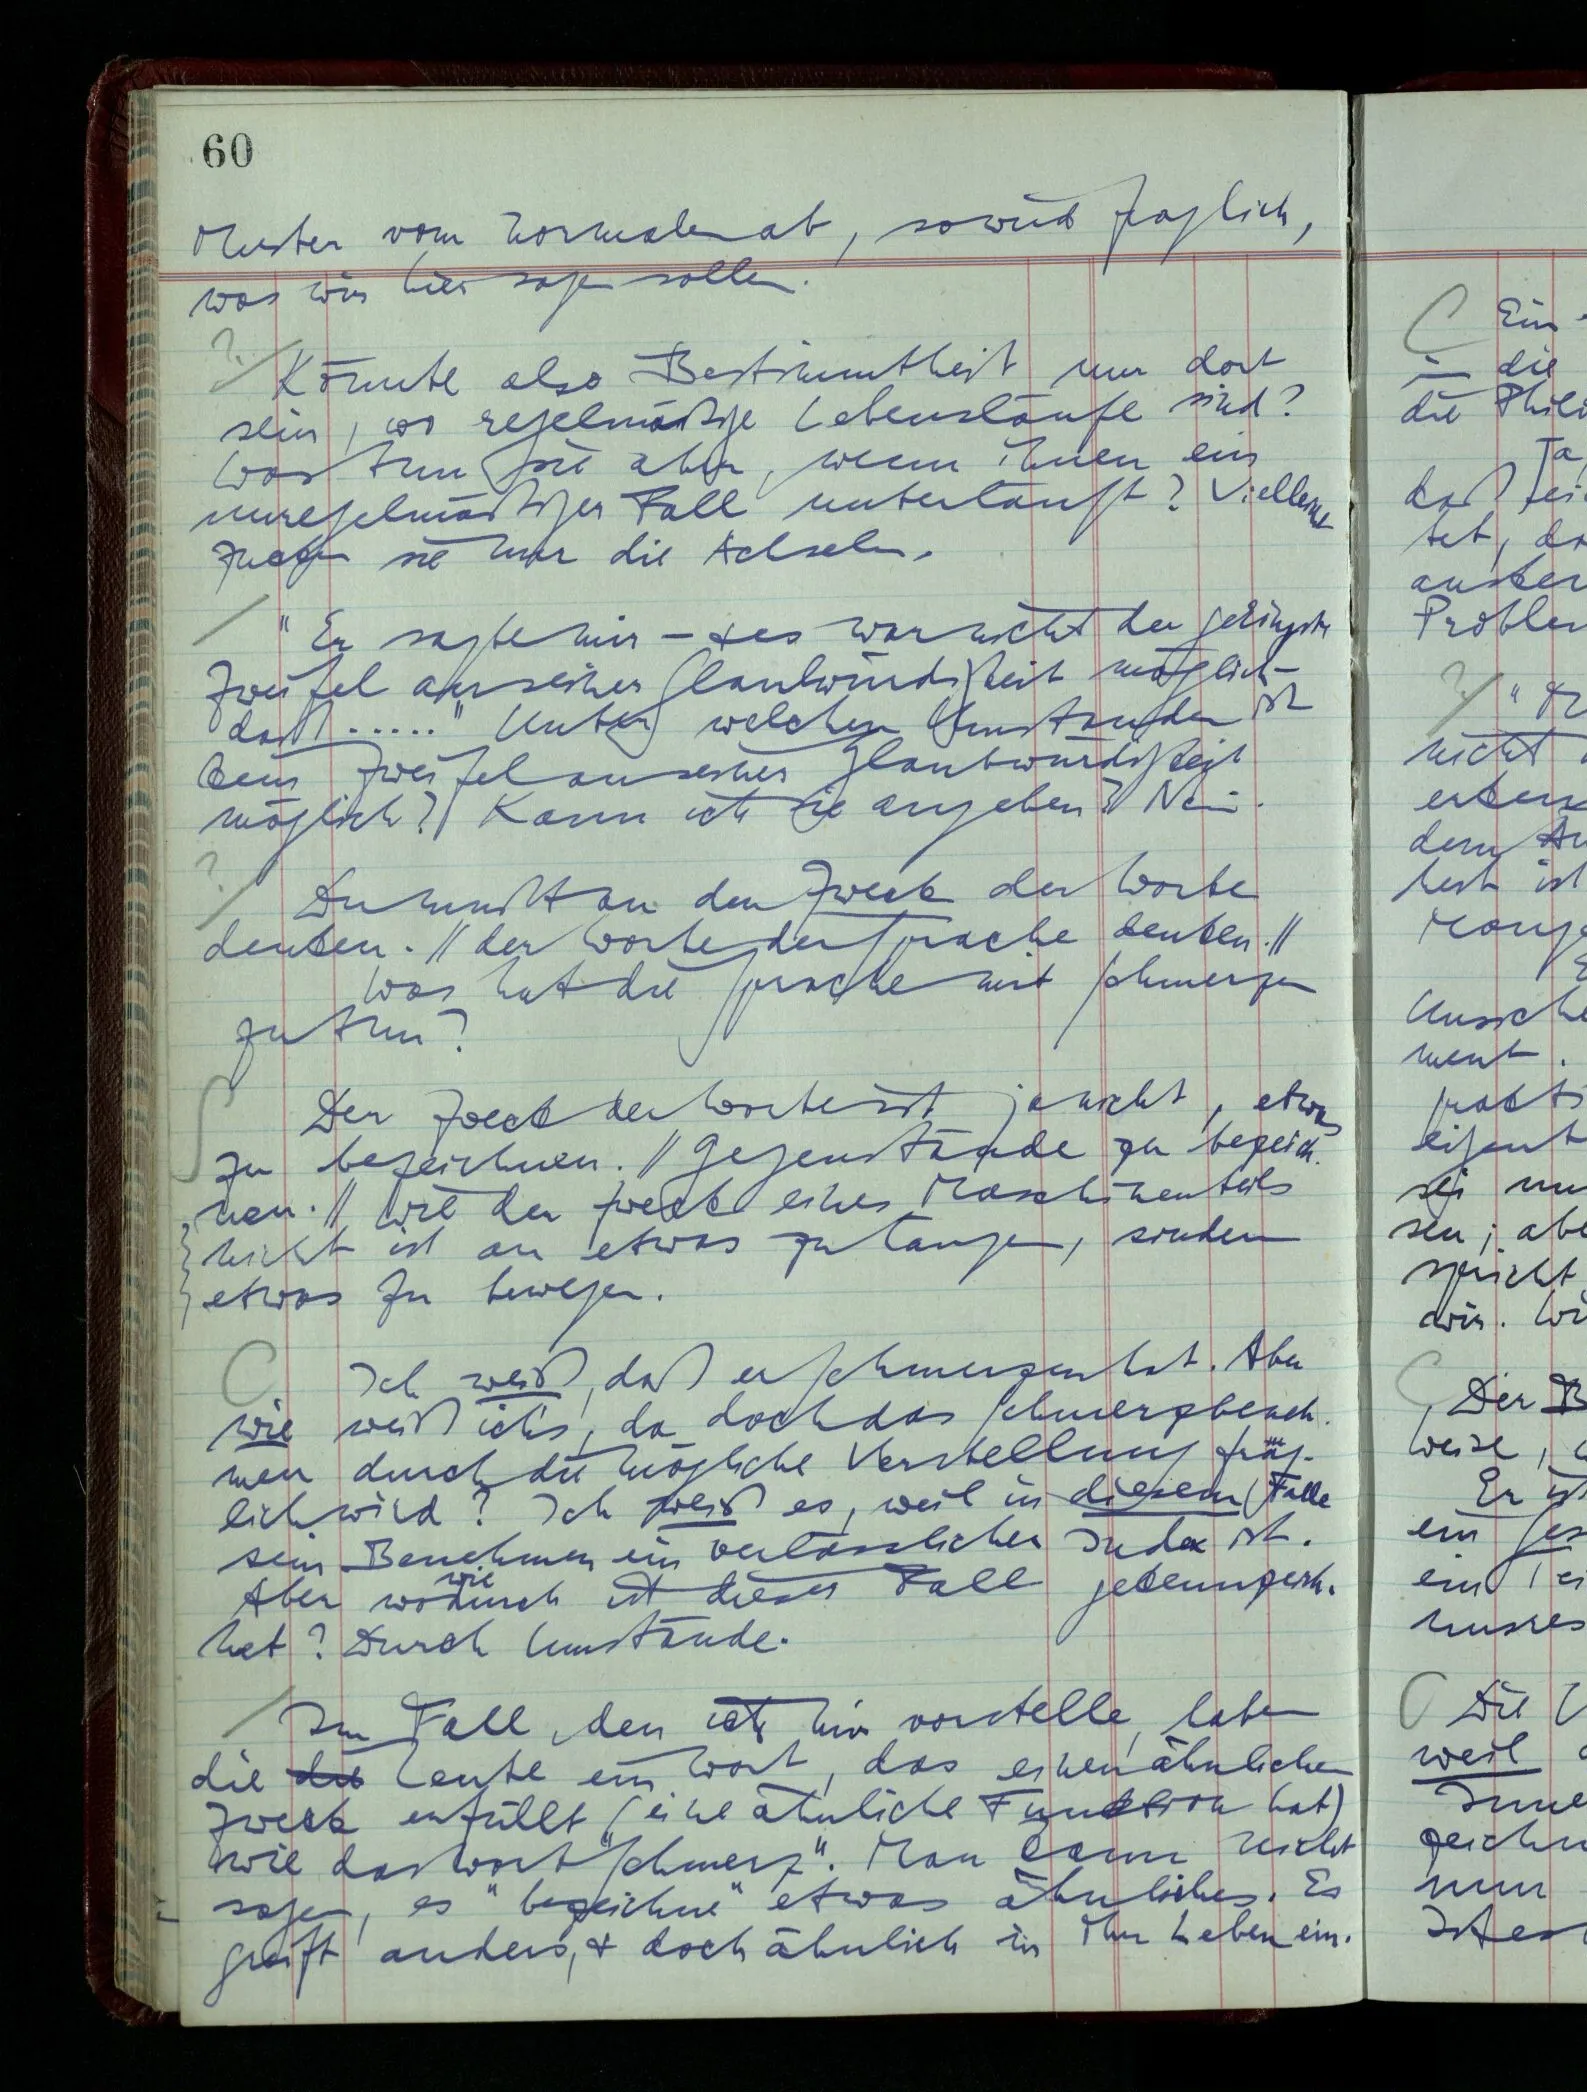 60
Muster vom Normalen ab, so wird fraglich,
was wir hier sagen sollen.
?/ Könnte also Bestimmtheit nur dort
sein, wo regelmäßige Lebensläufe sind?
Was tun sie aber, wenn ihnen ein
unregelmäßiger Fall unterläuft? Vielleicht
zucken sie nur die Achseln.
/ "Er sagte mir – & es war nicht der geringste
Zweifel an seiner Glaubwürdigkeit möglich –
daß ....." Unter welchen Umständen ist
kein Zweifel an seiner Glaubwürdigkeit
möglich? Kann ich sie angeben? Nein.
?/ Du mußt an den Zweck der Worte
denken. // der Worte der Sprache denken. //
Was hat die Sprache mit Schmerzen
zu tun?
∫ Der Zweck der Worte ist ja nicht, etwas
zu bezeichnen. // Gegenstände zu bezeich-
nen. // Wie der Zweck eines Maschinenteils
nicht ist an etwas zu langen, sondern
etwas zu bewegen.
C Ich weiß, daß er Schmerzen hat. Aber
wie weiß ich's, da doch das Schmerzbeneh-
men durch die mögliche Verstellung frag-
lich wird? Ich weiß es, weil in diesem Falle
sein Benehmen ein verlässlicher Index ist.
wie
Aber wodurch ist dieser Fall gekennzeich-
net? Durch Umstände.
/ Im Fall, den ich mir vorstelle, haben
die die Leute ein Wort, das einen ähnlichen
Zweck erfüllt (eine ähnliche Funktion hat)
wie das Wort "Schmerz". Man kann nicht
sagen, es "bezeichne" etwas ähnliches. Es
greift anders, & doch ähnlich in ihr Leben ein.
C Ein
in die
die
Ja
daß
tet,
ausser
?/
nicht
dem
ist
ment.
sei nur
sen; aber
spricht
wir.
C Der
weise,
Er ist
ein
ein
unsres
C Die
weil
nun